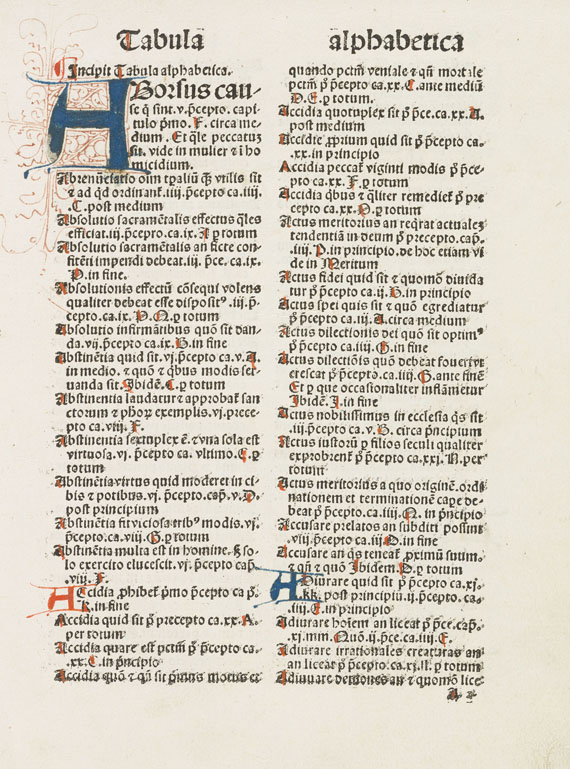 Tabula alphabetica
Incipit Tabula alphabetica.
ABorsus cau-
se q̄ sint .v. p̄cepto. capi
tulo p̄mo. F. circa me-
dium. Et q̄le peccatuȝ
sit. vide in mulier ⁊ ī ho
micidium.
Abrenūciatio oīm tp̄aliū q̄ȝ vtilis sit
⁊ ad qd ordinant̄ .iiij. p̄cepto ca. iiij
.C. post medium
Absolutio sacramētalis effectus q̄les
efficiat .iij. p̄cepto. ca. ix. A p totum
Absolutio sacramētalis an ficte con-
fitēti impendi debeat. iij. p̄ce. ca. ix.
P. in fine.
Absolutionis effectū cōsequi volens
qualiter debeat esse disposit⁹ .iij. p̄-
cepto ca. ix. P. Q. p totum
Absolutio infirmātibus quō sit dan-
da. vij. p̄cepto ca. ix. H. in fine
Abstinētia quid sit. vj. p̄cepto ca. v. A.
in medio. ⁊ quō ⁊ q̄bus modis ser
uanda sit. Ibidē. C. p totum
Abstinentia laudatur ⁊ approbat̄ san
ctorum ⁊ ph̄oꝝ exemplis. vj. prece-
pto ca. viij. F.
Abstinentia sextuplex ē. ⁊ vna sola est
virtuosa. vj. p̄cepto ca. vltimo. C. p
totum
Abstinētia virtus quid moderet in ci-
bis ⁊ potibus. vj. p̄cepto. cap̄. v. D.
post principium
Abstinētia fit viciosa trib⁹ modis. vj.
p̄cepto. ca. viij. G. p totum
Abstinētia multa est in homine. sȝ so-
lo exercito elucescit. vj. p̄cepto cap̄
.viij. F.
Accidia phibet̄ p̄mo p̄cepto ca p̄.
K. in fine
Accidia quid sit p̄ precepto ca. xx. A.
per totum
Accidia quare est pctm̄ p̄ p̄cepto ca-
.xx. C. in p̄ncipio
Accidia quō ⁊ qn̄ sit p̄mus motus et
quando pctm̄ veniale ⁊ qn̄ mortale
pctm̄ p̄ p̄cepto ca. xx. C. ante mediū
D. E. p totum.
Accidia quotuplex sit p̄ p̄ce. ca. xx. A.
post medium
Accidie p̄prium quid sit p̄ p̄cepto ca
.xx. in principio
Accidia peccat̄ viginti modis p̄ p̄ce-
pto ca. xx. F. p totum
Accidia q̄bus ⁊ q̄liter remediet̄ p̄ pre
cepto ca. xx. P. p totum
Actus meritorius an reqrat actualeȝ
tendentiā in deum p̄ precepto. cap̄.
.iiij. P. in principio. de hoc etiam vi
de in Meritum
Actus fidei quid sit ⁊ quomō diuida
tur p̄ p̄cepto ca. ij. H. in principio
Actus spei quis sit ⁊ quō egrediatur
p̄ p̄cepto ca. iij. A. circa medium
Actus dilectionis dei quō sit optim⁹
p̄ p̄cepto ca. iiij. G. in fine
Actus dilectiōis quō debeat fouerivt
crescat p̄ p̄cepto. ca. iiij. G. ante finē
Et p que occasionaliter inflāmetur
Ibidē. I. in fine
Actus nobilissimus in ecclesia qs sit
.iij. p̄cepto ca. v. G. circa p̄ncipium
Actus iustorū p filios seculi qualiter
exprobrent̄ p̄ p̄cepto ca. xxj. N. per
totum
Actus meritorius a quo originē. ordi
nationem et terminationē cape de-
beat p̄ p̄cepto ca. iiij. N. in p̄ncipio
Accusare prelatos an subditi possint
.viij. p̄cepto ca. iiij. D. in fine
Accusare an qs teneat̄ p̄ximū suum.
⁊ qn̄ ⁊ quō Ibidem. P. p totum
ADiurare quid sit p̄ p̄cepto ca. xj.
.kk. post principiū. ij. p̄cepto ca.
.iiij. E. in principio
Adiurare hoīem an liceat p̄ p̄ce. cap̄.
.xj. mm. Quō .ij. p̄ce. ca. iiij. E.
Adiurare irrationales creaturas an
an liceat p̄ p̄cepto. ca. xj. ll. p totum
Adiuuare demones an ⁊ quomō lice
A 2